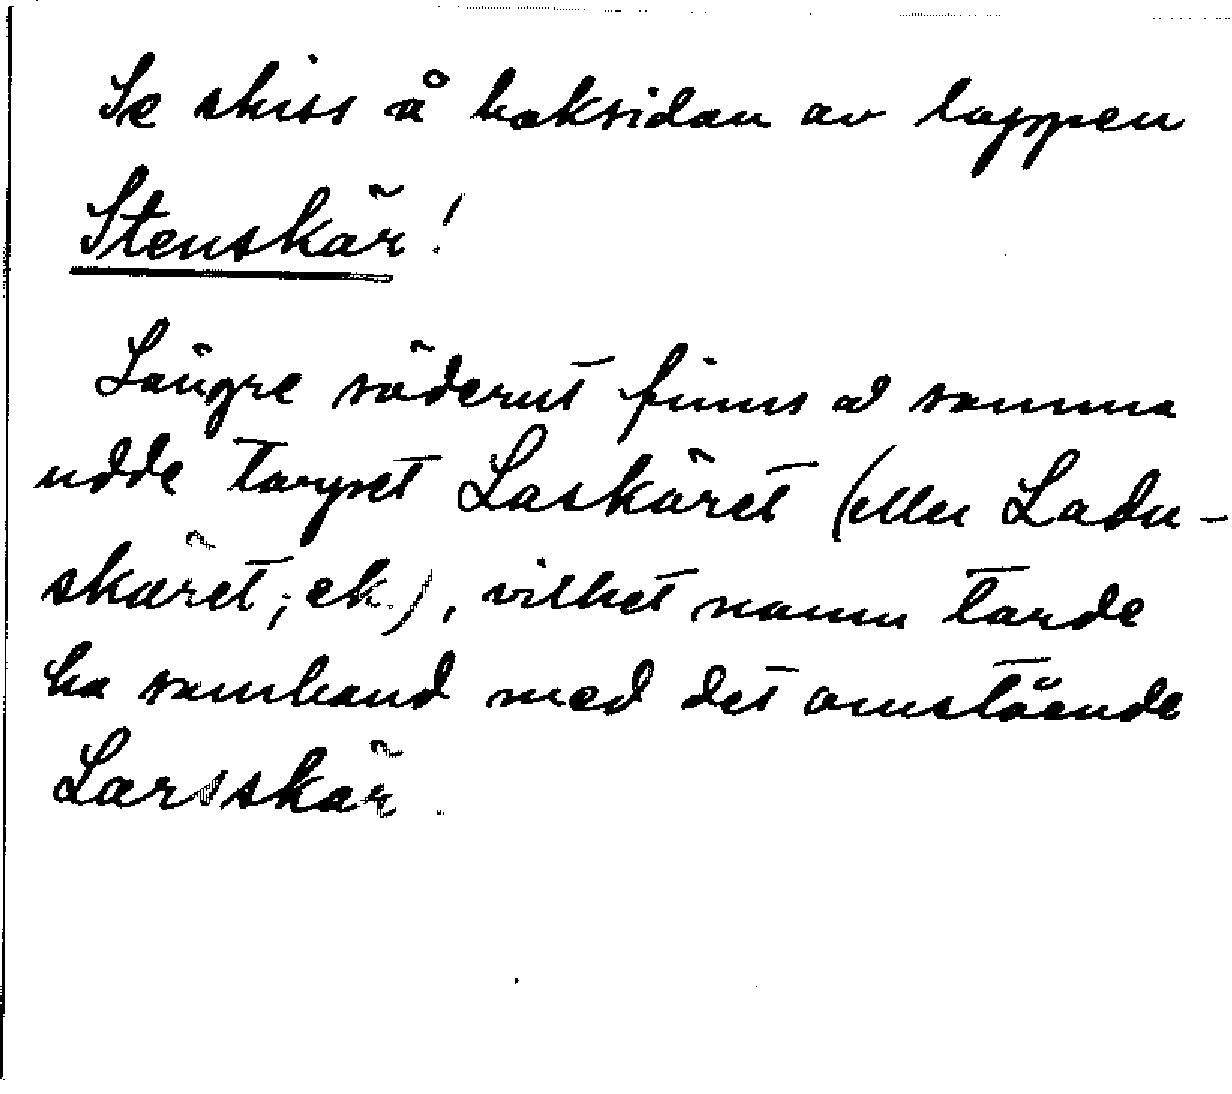 Se skiss å baksidan av lappen
Stenskär!
Längre söderut finns å samma
udde torpet Laskäret (eller Ladu-
skäret; ek.), vilket namn torde
ha samband med det omstående
Larsskär.